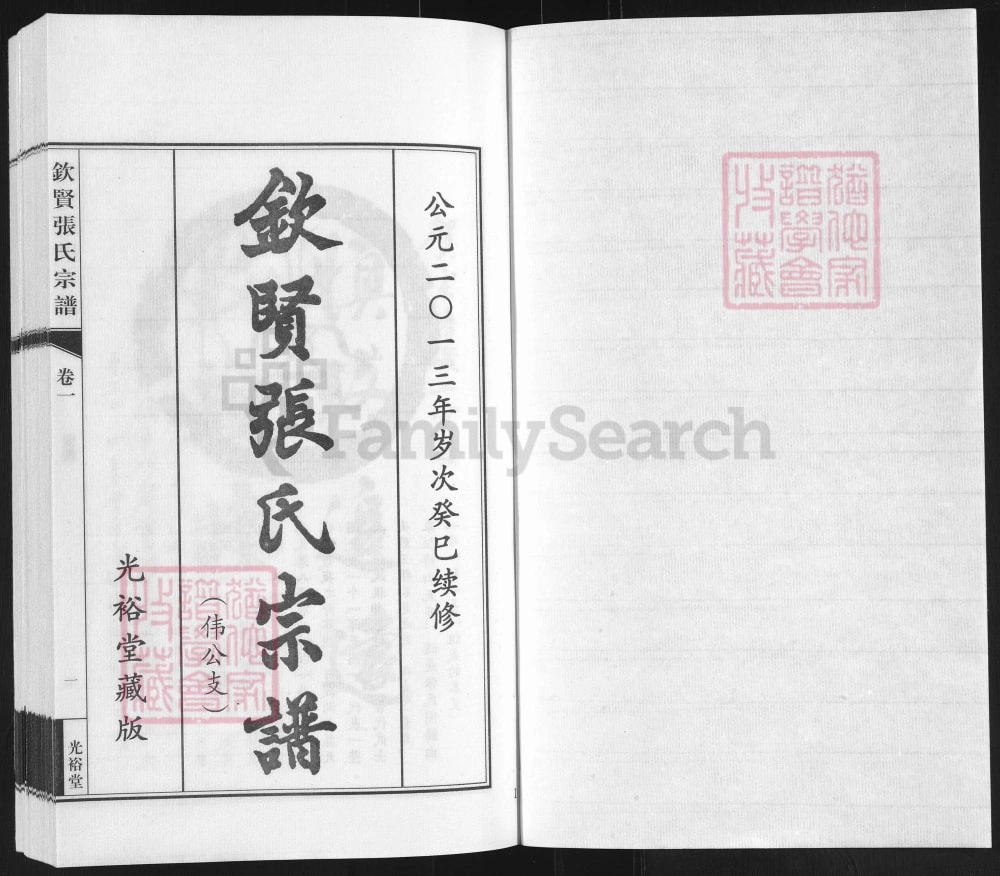 公元二〇一三年岁次癸巳续修
欽賢張氏宗譜
(伟公支)
光裕堂藏版
欽賢張氏宗譜
卷一
一
光裕堂
FamilySearch
猶他家
譜學會
收藏
猶他家
譜學會
收藏